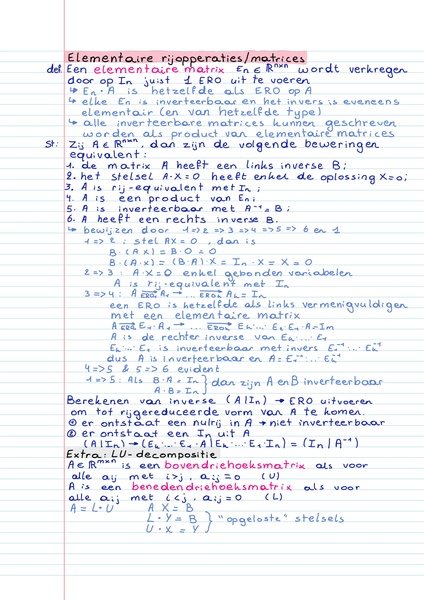 Elementaire rijopperaties/matrices
def. Een elementaire matrix Eₙ ∈ ℝⁿˣⁿ wordt verkregen
door op Iₙ juist 1 ERO uit te voeren
↳ Eₙ · A is hetzelfde als ERO op A
↳ elke Eₙ is inverteerbaar en het invers is eveneens
elementair (en van hetzelfde type)
↳ alle inverteerbare matrices kunnen geschreven
worden als product van elementaire matrices
St: Zij A ∈ ℝⁿˣⁿ, dan zijn de volgende beweringen
equivalent:
1. de matrix A heeft een links inverse B;
2. het stelsel A·X=0 heeft enkel de oplossing X=0;
3. A is rij-equivalent met Iₙ;
4. A is een product van Eₙ;
5. A is inverteerbaar met A⁻¹ = B;
6. A heeft een rechts inverse B.
↳ bewijzen door 1=>2 =>3 =>4 =>5 =>6 en 1
1=>2: stel AX=0, dan is
B·(AX)=B·0=0
B·(A·X)=(B·A)·X=Iₙ·X=X=0
2=>3: A·X=0 enkel gebonden variabelen
A is rij-equivalent met Iₙ
3=>4: A ERO1 A₁ → ... EROk Aₖ=Iₙ
een ERO is hetzelfde als links vermenigvuldigen
met een elementaire matrix
A ERO1 E₁·A → ... EROk Eₖ·...·E₂·E₁·A=Iₙ
A is de rechter inverse van Eₖ...·E₁
Eₖ·...·E₁ is inverteerbaar met invers E₁⁻¹·...·Eₖ⁻¹
dus A is inverteerbaar en A=E₁⁻¹...Eₖ⁻¹
4=>5 & 5=>6 evident
1=>5: Als B·A=Iₙ } dan zijn A en B inverteerbaar
A·B=Iₙ
Berekenen van inverse (A|Iₙ) → ERO uitvoeren
om tot rijgereduceerde vorm van A te komen.
① er ontstaat een nulrij in A → niet inverteerbaar
② er ontstaat een Iₙ uit A
(A|Iₙ)→(Eₖ·...·E₁·A|Eₖ...·E₁·Iₙ)=(Iₙ|A⁻¹)
Extra: LU-decompositie
A∈ℝᵐˣⁿ is een bovendriehoeksmatrix als voor
alle aij met i>j, aij=0 (U)
A is een benedendriehoeksmatrix als voor
alle aij met i<j, aij=0 (L)
A=L·U A X=B
L·Y=B } "opgeloste" stelsels
U·X=Y